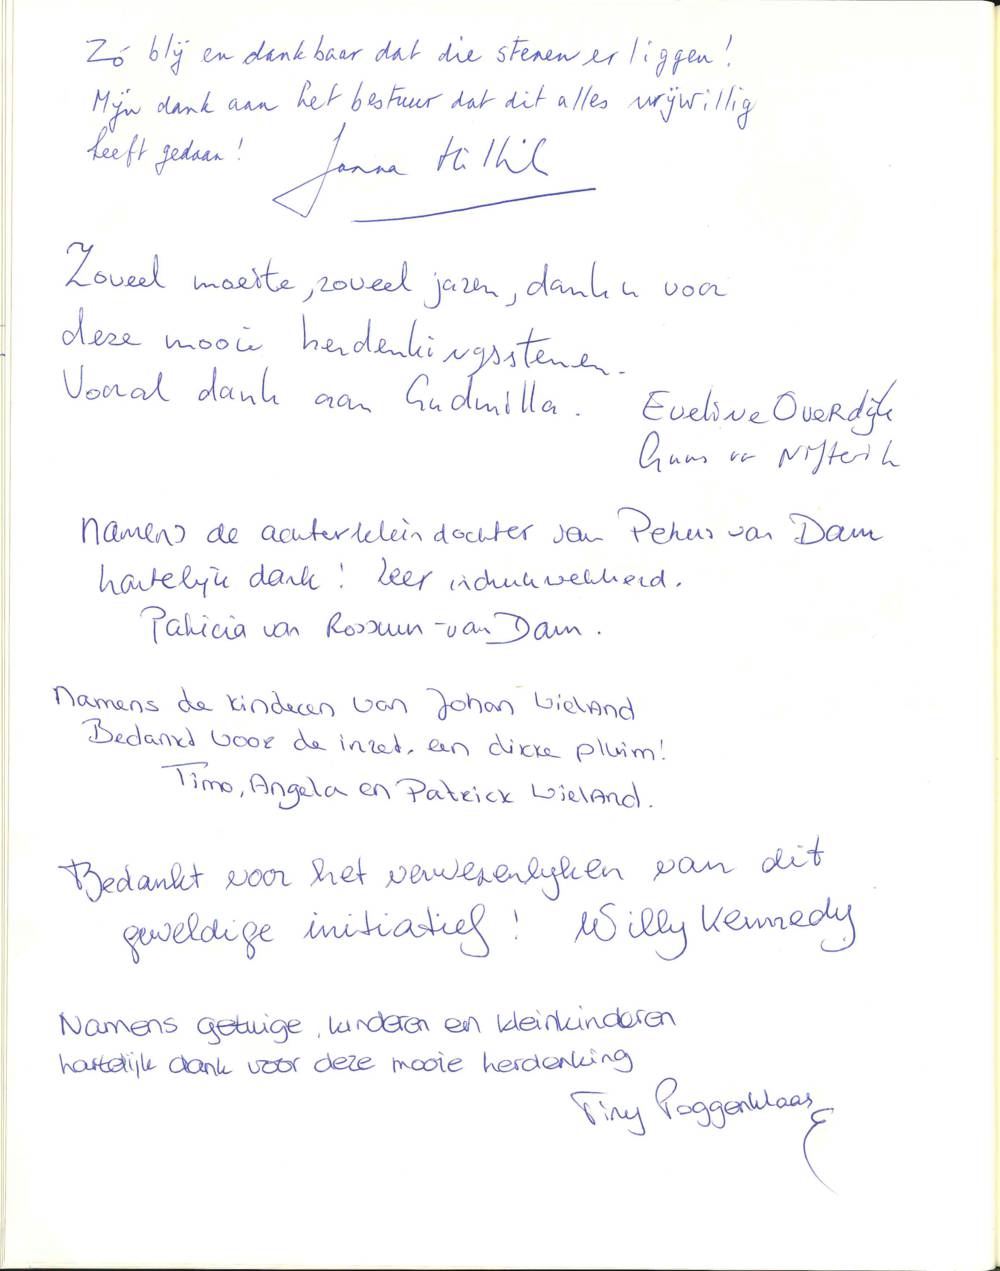 Zó blij en dankbaar dat die stenen er liggen!
Mijn dank aan het bestuur dat dit alles vrijwillig
heeft gedaan! Janna
Zoveel moeite, zoveel jaren, dank u voor
deze mooie herdenkingsstenen.
Vooral dank aan Gudmilla. Eveline Overdijk
Nifterik
Namens de achterkleindochter van Petrus van Dam
hartelijk dank! Zeer indrukwekkend.
Patricia van Rossum-van Dam.
Namens de kinderen van Johan Wieland
Bedankt voor de inzet. een dikke pluim!
Timo, Angela en Patrick Wieland.
Bedankt voor het verwezenlijken van dit
geweldige initiatief! Willy Kennedy
Namens getuige, kinderen en kleinkinderen
hartelijk dank voor deze mooie herdenking
Tiny Poggenklaas